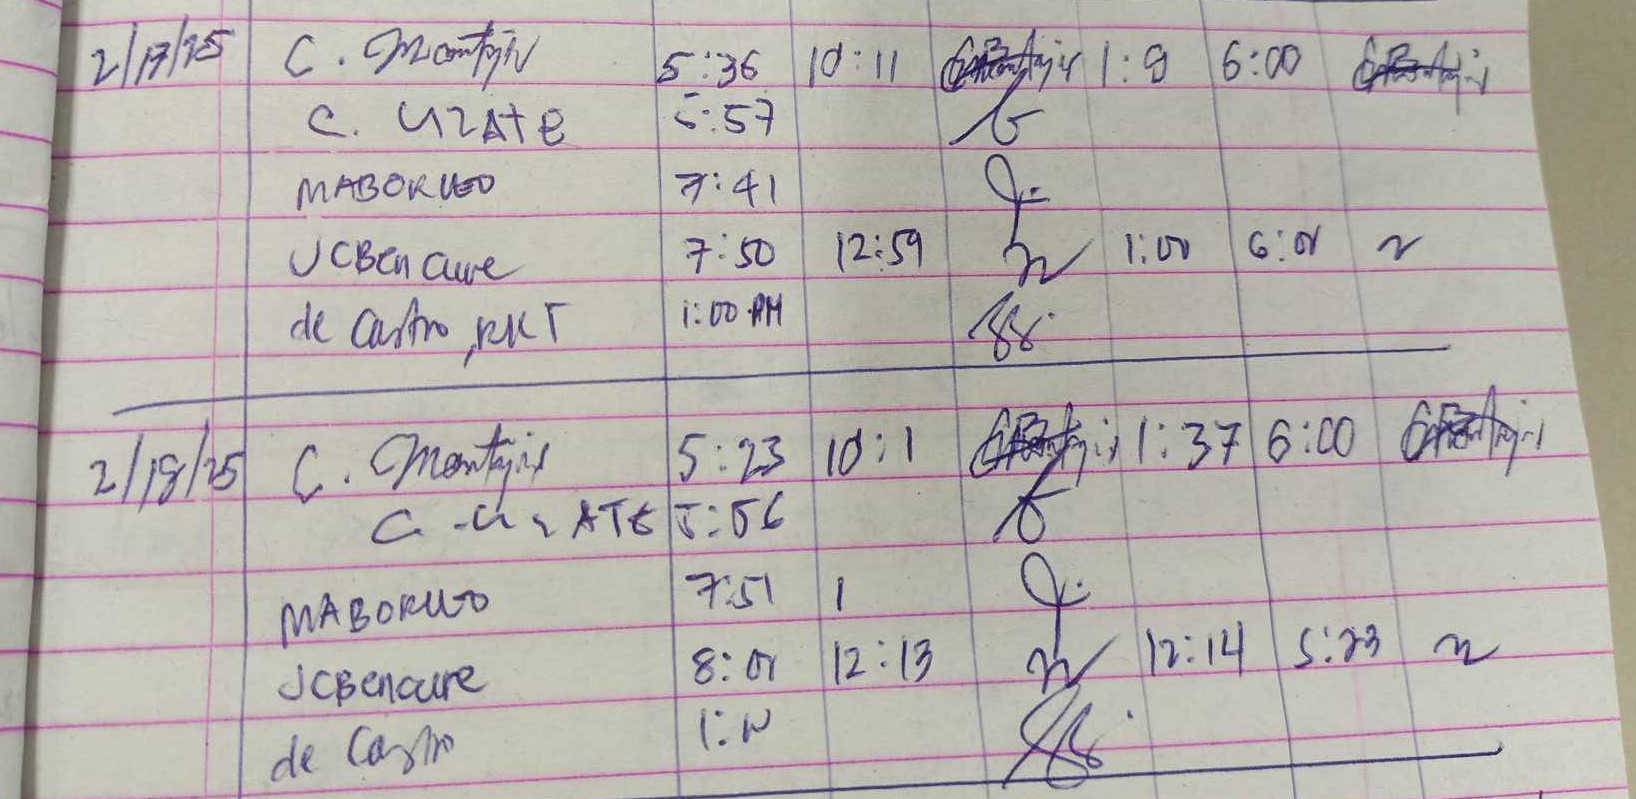 2/17/25 C. Montajis 5:36 10:11 1:9 6:00
C. URATE 5:57
MABORUED 7:41
JCBencure 7:50 12:59 1:00 6:01
de Castro, RKT 1:00 AM
2/18/25 C. Montajis 5:23 10:1 1:37 6:00
C. URATE 5:56
MABORUED 7:51 1
JCBencure 8:01 12:13 12:14 5:23
de Castro